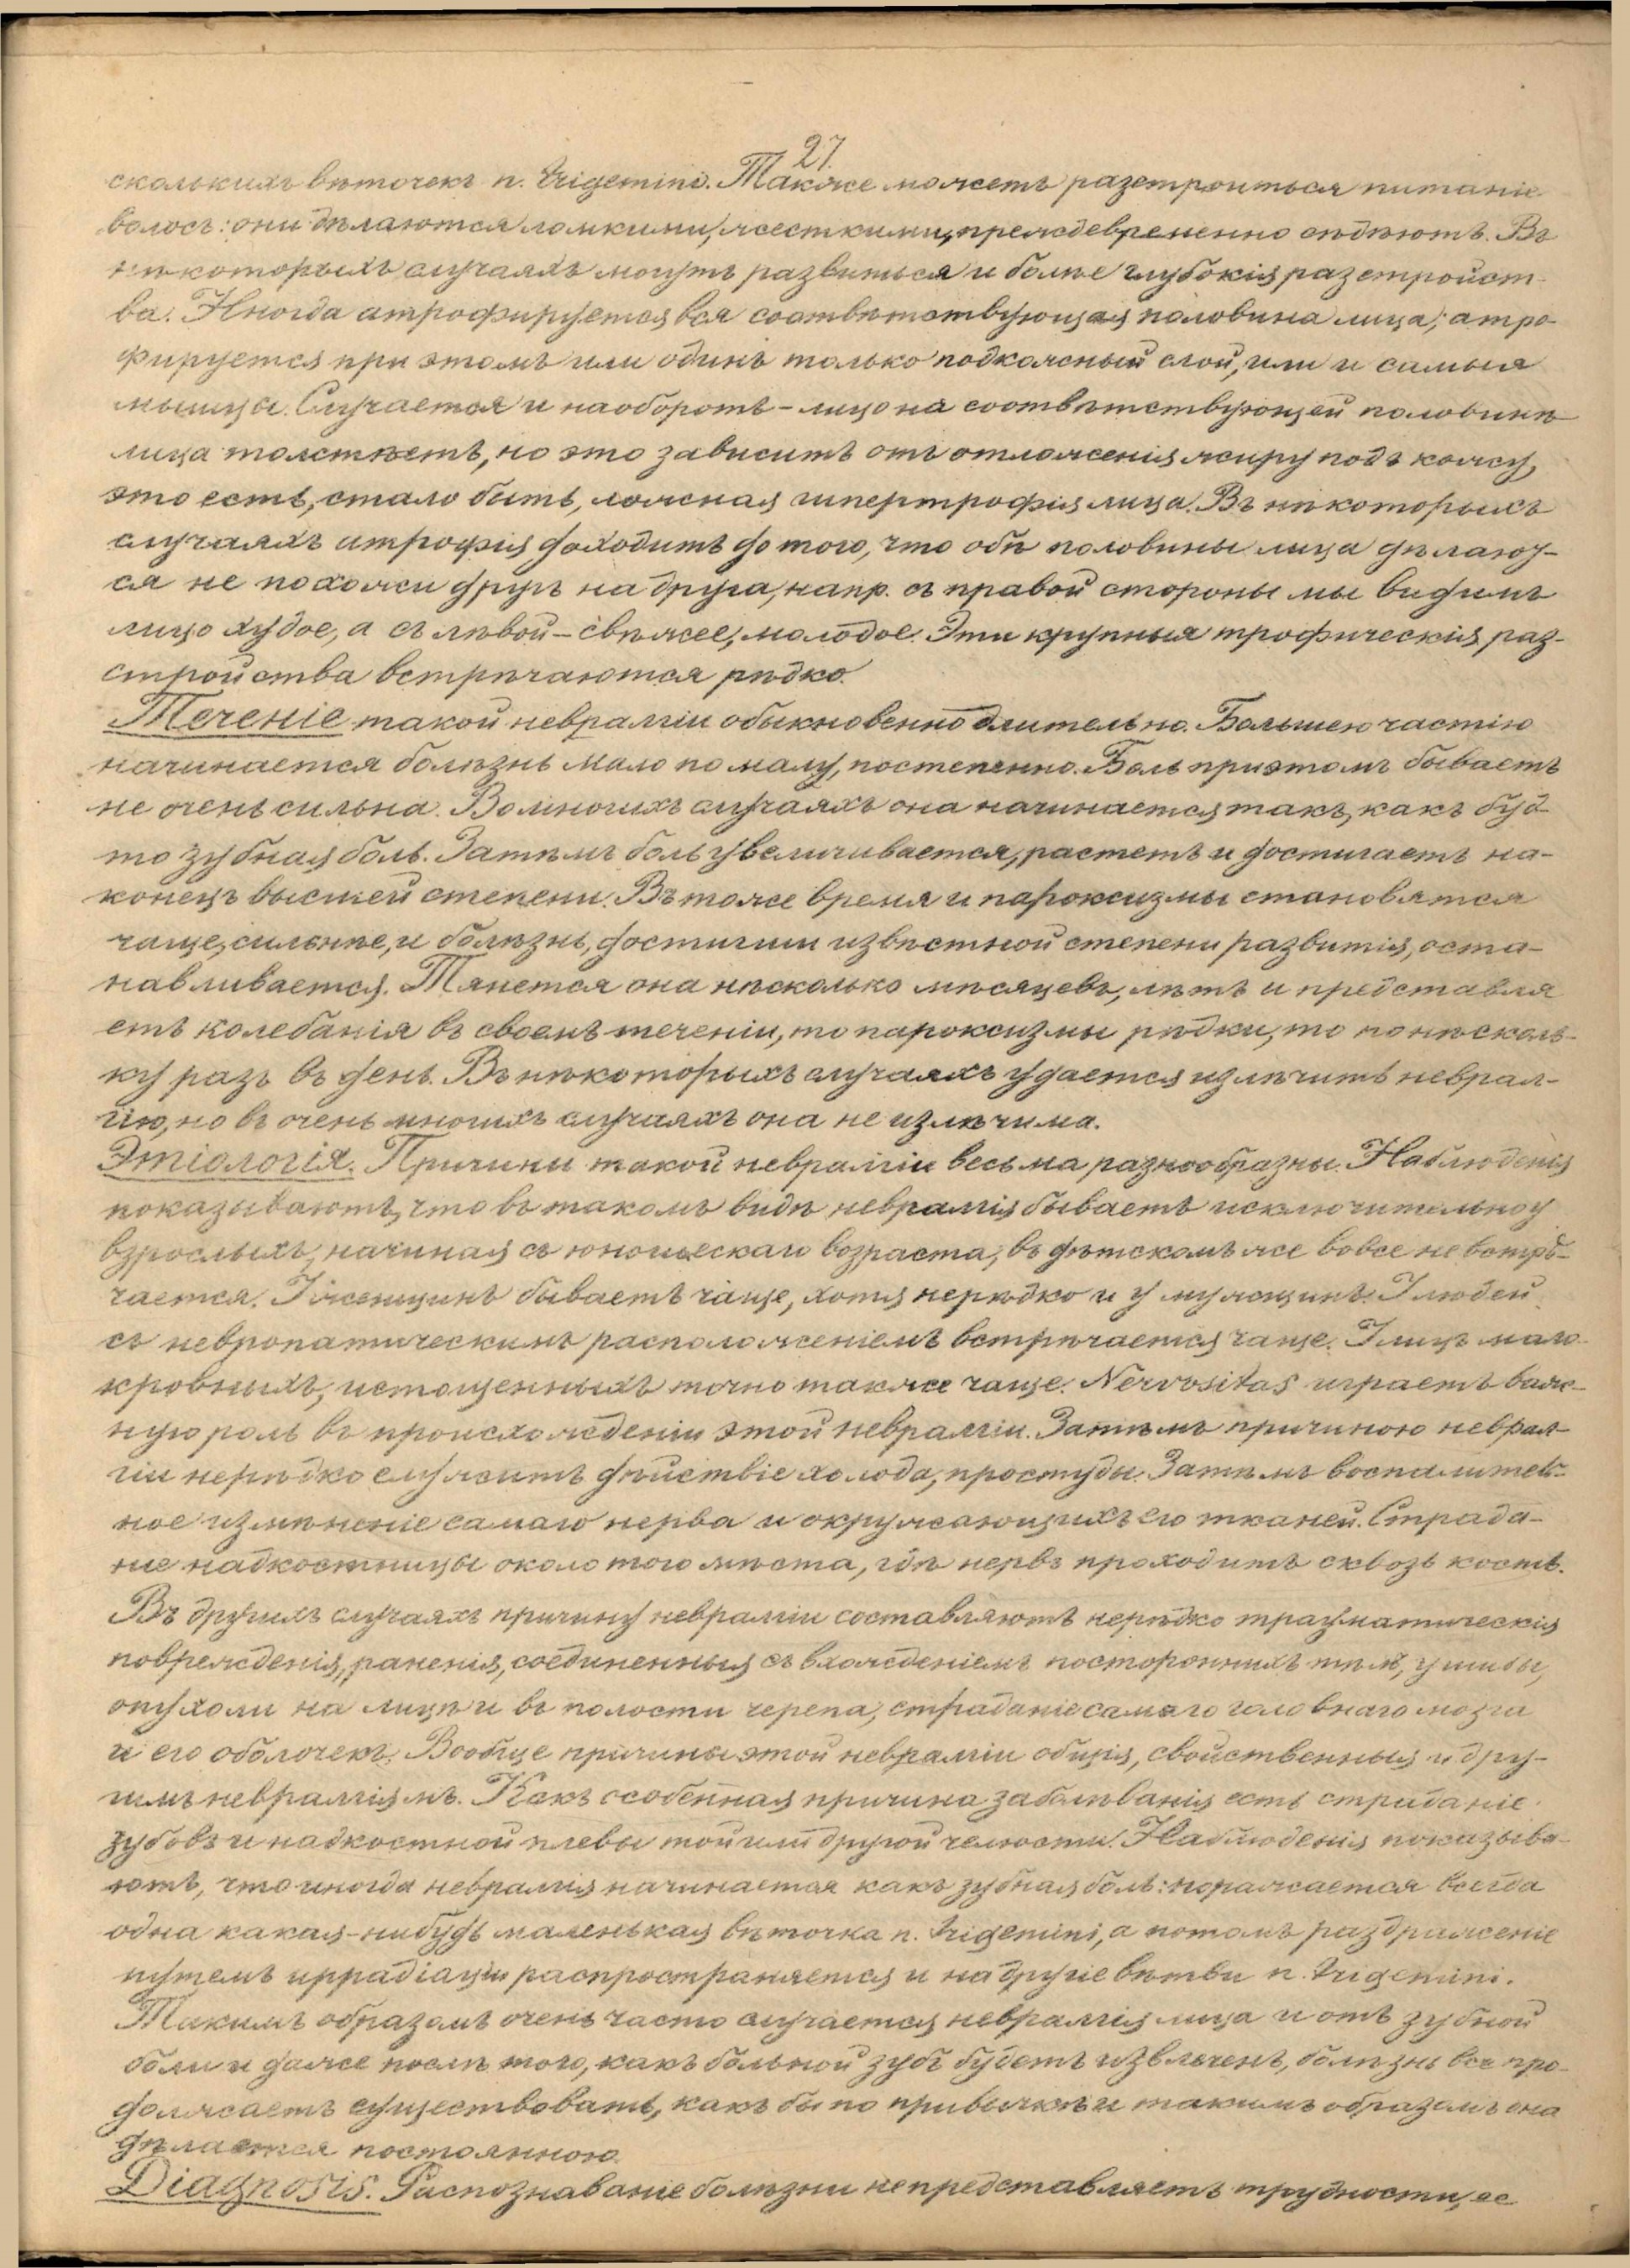 27.
скольких вѣточекъ n. trigemini. Также можетъ разстроиться питаніе
волосъ: они дѣлаются ломкими, жесткими, преждевременно сѣдѣютъ. Въ
нѣкоторыхъ случаяхъ могутъ развиться и болѣе глубокія разстройст-
ва. Иногда атрофируется вся соотвѣтствующая половина лица; атро-
фируется при этомъ или одинъ только подкожный слой, или и самыя
мышцы. Случается и наоборотъ – лицо на соотвѣтствующей половинѣ
лица толстѣетъ, но это зависитъ отъ отложенія жиру подъ кожу,
это есть, стало быть, ложная гипертрофія лица. Въ нѣкоторыхъ
случаяхъ атрофія доходитъ до того, что обѣ половины лица дѣлают-
ся не похожи другъ на друга, напр. съ правой стороны мы видимъ
лицо худое, а съ лѣвой – свѣжее, молодое. Эти крупныя трофическія раз-
стройства встрѣчаются рѣдко.
Теченіе такой невралгіи обыкновенно длительно. Большею частію
начинается болѣзнь мало по малу, постепенно. Боль приэтомъ бываетъ
не очень сильна. Во многихъ случаяхъ она начинается такъ, какъ буд-
то зубная боль. Затѣмъ боль увеличивается, растетъ и достигаетъ на-
конецъ высшей степени. Въ тоже время и пароксизмы становятся
чаще, сильнѣе, и болѣзнь, достигши извѣстной степени развитія, оста-
навливается. Тянется она нѣсколько мѣсяцевъ, лѣтъ и представля
етъ колебанія въ своемъ теченіи, то пароксизмы рѣдки, то по нѣсколь-
ку разъ въ день. Въ нѣкоторыхъ случаяхъ удается излѣчить неврал-
гію, но въ очень многихъ случаяхъ она не излѣчима.
Этіологія. Причини такой невралгіи весьма разнообразны. Наблюденія
показываютъ, что въ такомъ видѣ невралгія бываетъ исключительно у
взрослыхъ, начиная съ юношескаго возраста, въ дѣтскомъ же вовсе не встрѣ-
чается. У женщинъ бываетъ чаще, хотя нерѣдко и у мужщинъ. У людей
съ невропатическимъ расположеніемъ встрѣчается чаще. У лицъ мало-
кровныхъ, истощенныхъ точно также чаще. Nervositas играетъ важ-
ную роль въ происхожденіи этой невралгіи. Затѣмъ причиною неврал-
гіи нерѣдко служитъ дѣйствіе холода, простуды. Затѣмъ воспалитель-
ное измѣненіе самаго нерва и окружающихъ его тканей. Страда-
ніе надкостницы около того мѣста, гдѣ нервъ проходитъ сквозь кость.
Въ другихъ случаяхъ причину невралгіи составляютъ нерѣдко травматическія
поврежденія, раненія, соединенныя съ вхожденіемъ постороннихъ тѣлъ, ушибы,
опухоли на лицѣ и въ полости черепа, страданіе самаго головнаго мозга
и его оболочекъ. Вообще причины этой невралгіи общія, свойственныя и дру-
гимъ невралгіямъ. Какъ особенная причина заболѣванія есть страданіе
зубовъ и надкостной плевы той или другой челюсти. Наблюденія показыва-
ютъ, что иногда невралгія начинается какъ зубная боль: поражается всегда
одна какая-нибудь маленькая вѣточка n. trigemini, а потомъ раздраженіе
путемъ иррадіаціи распространяется и на другіе вѣтви n. trigemini.
Такимъ образомъ очень часто случается невралгія лица и отъ зубной
боли и даже послѣ того, какъ больной зубъ будетъ извлеченъ, болѣзнь все про-
должаетъ существовать, какъ бы по привычкѣ и такимъ образомъ она
дѣлается постоянною.
Diagnosis. Распознаваніе болѣзни не представляетъ трудности, ее